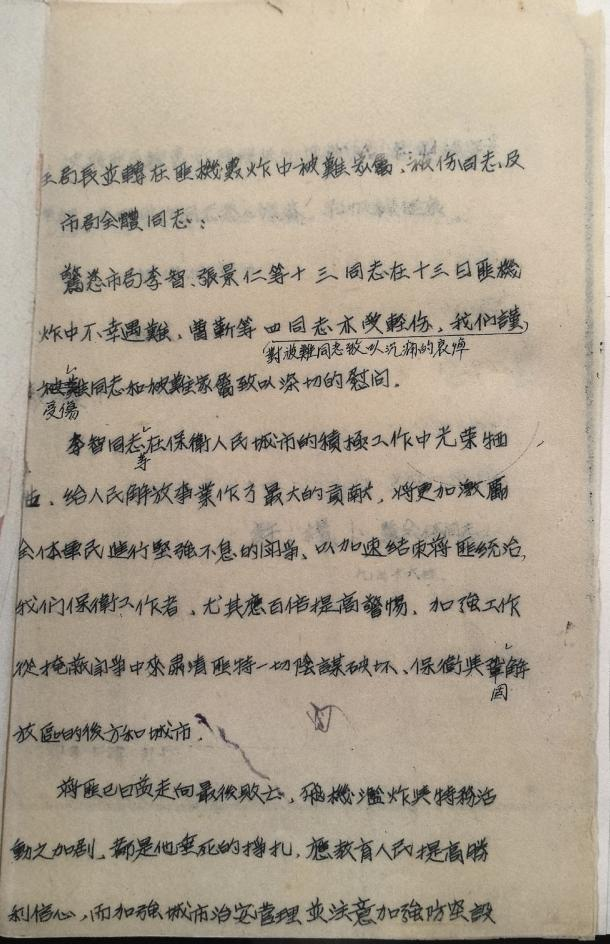 王局長並轉在匪機轟炸中被難家屬、被傷同志及
市局全體同志：
驚悉市局李智、張景仁等十三同志在十三日匪機
炸中不幸遇難、曹新等四同志亦受輕伤，我們謹
對被難同志致以沉痛的哀悼
被難同志和被難家屬致以深切的慰问。
受傷
李智同志在保衛人民城市的積極工作中光荣牺
等
牲、給人民解放事業作了最大的貢献，將更加激勵
全体軍民進行堅強不息的闘爭、以加速結束蔣匪統治，
我们保衛工作者、尤其應百倍提高警惕、加強工作
從掩蔽闘爭中來肅清匪特一切陰謀破坏、保衛與鞏解
固
放區的後方和城市。
蔣匪已日益走向最後敗亡，飛機濫炸與特務活
動之加剧，都是他垂死的掙扎，應教育人民提高勝
利信心，而加強城市治安管理並注意加強防空設